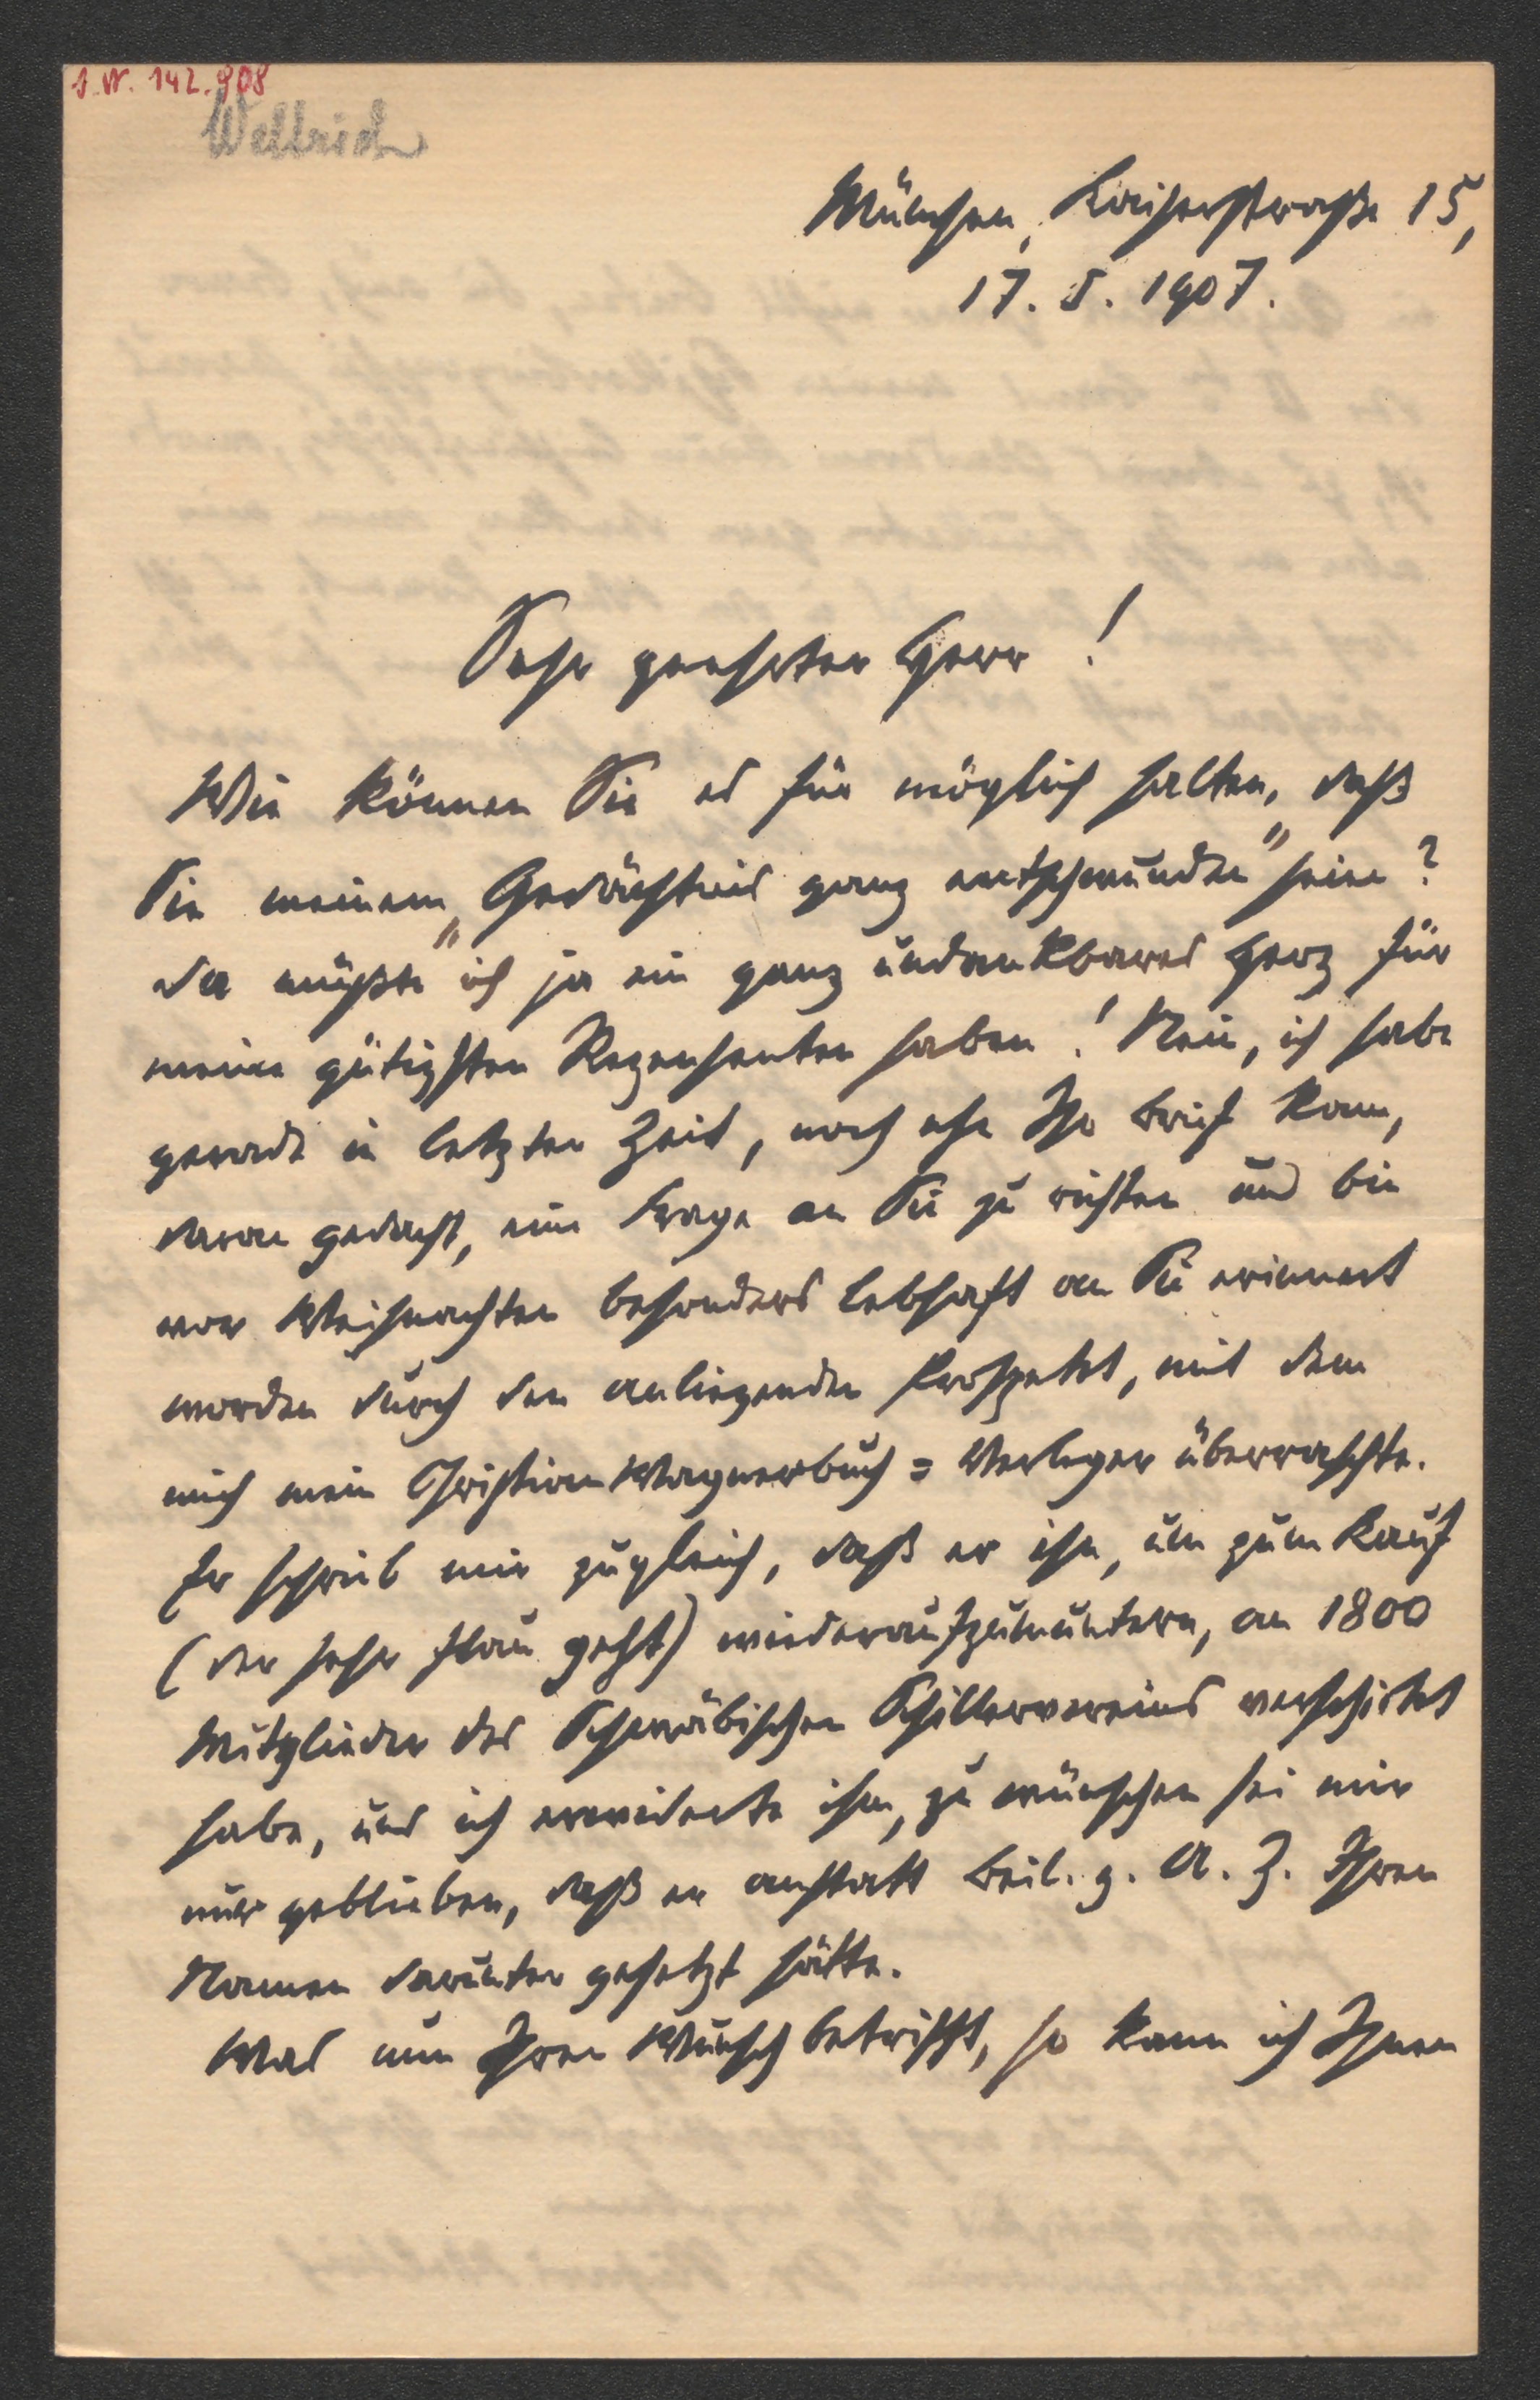 I.N. 142.908
Weltrich
München, Kaiserstraße 15,
17. 5. 1907.
Sehr geehrter Herr!
Wie können Sie es für möglich halten, daß
Sie meinem „Gedächtnis ganz entschwunden" seien?
Da müßte ich ja ein ganz undankbares Herz für
meine gütigsten Rezensenten haben! Nein, ich habe
gerade in letzter Zeit, noch ehe Ihr Brief kam,
daran gedacht, eine Frage an Sie zu richten und bin
vor Weihnachten besonders lebhaft an Sie erinnert
worden durch den anliegenden Prospekt, mit dem
mich mein Christian Wagnerbuch = Verleger überraschte.
Er schrieb mir zugleich, daß er ihn, um zum Kauf
(der sehr flau geht) wiederaufzumuntern, an 1800
Mitglieder des Schwäbischen Schillervereins verschickt
habe, und ich erwiderte ihm, zu wünschen sei mir
nur geblieben, daß er anstatt Beil. z. A. Z. Ihren
Namen darunter gesetzt hätte.
Was nun Ihren Wunsch betrifft, so kann ich Ihnen